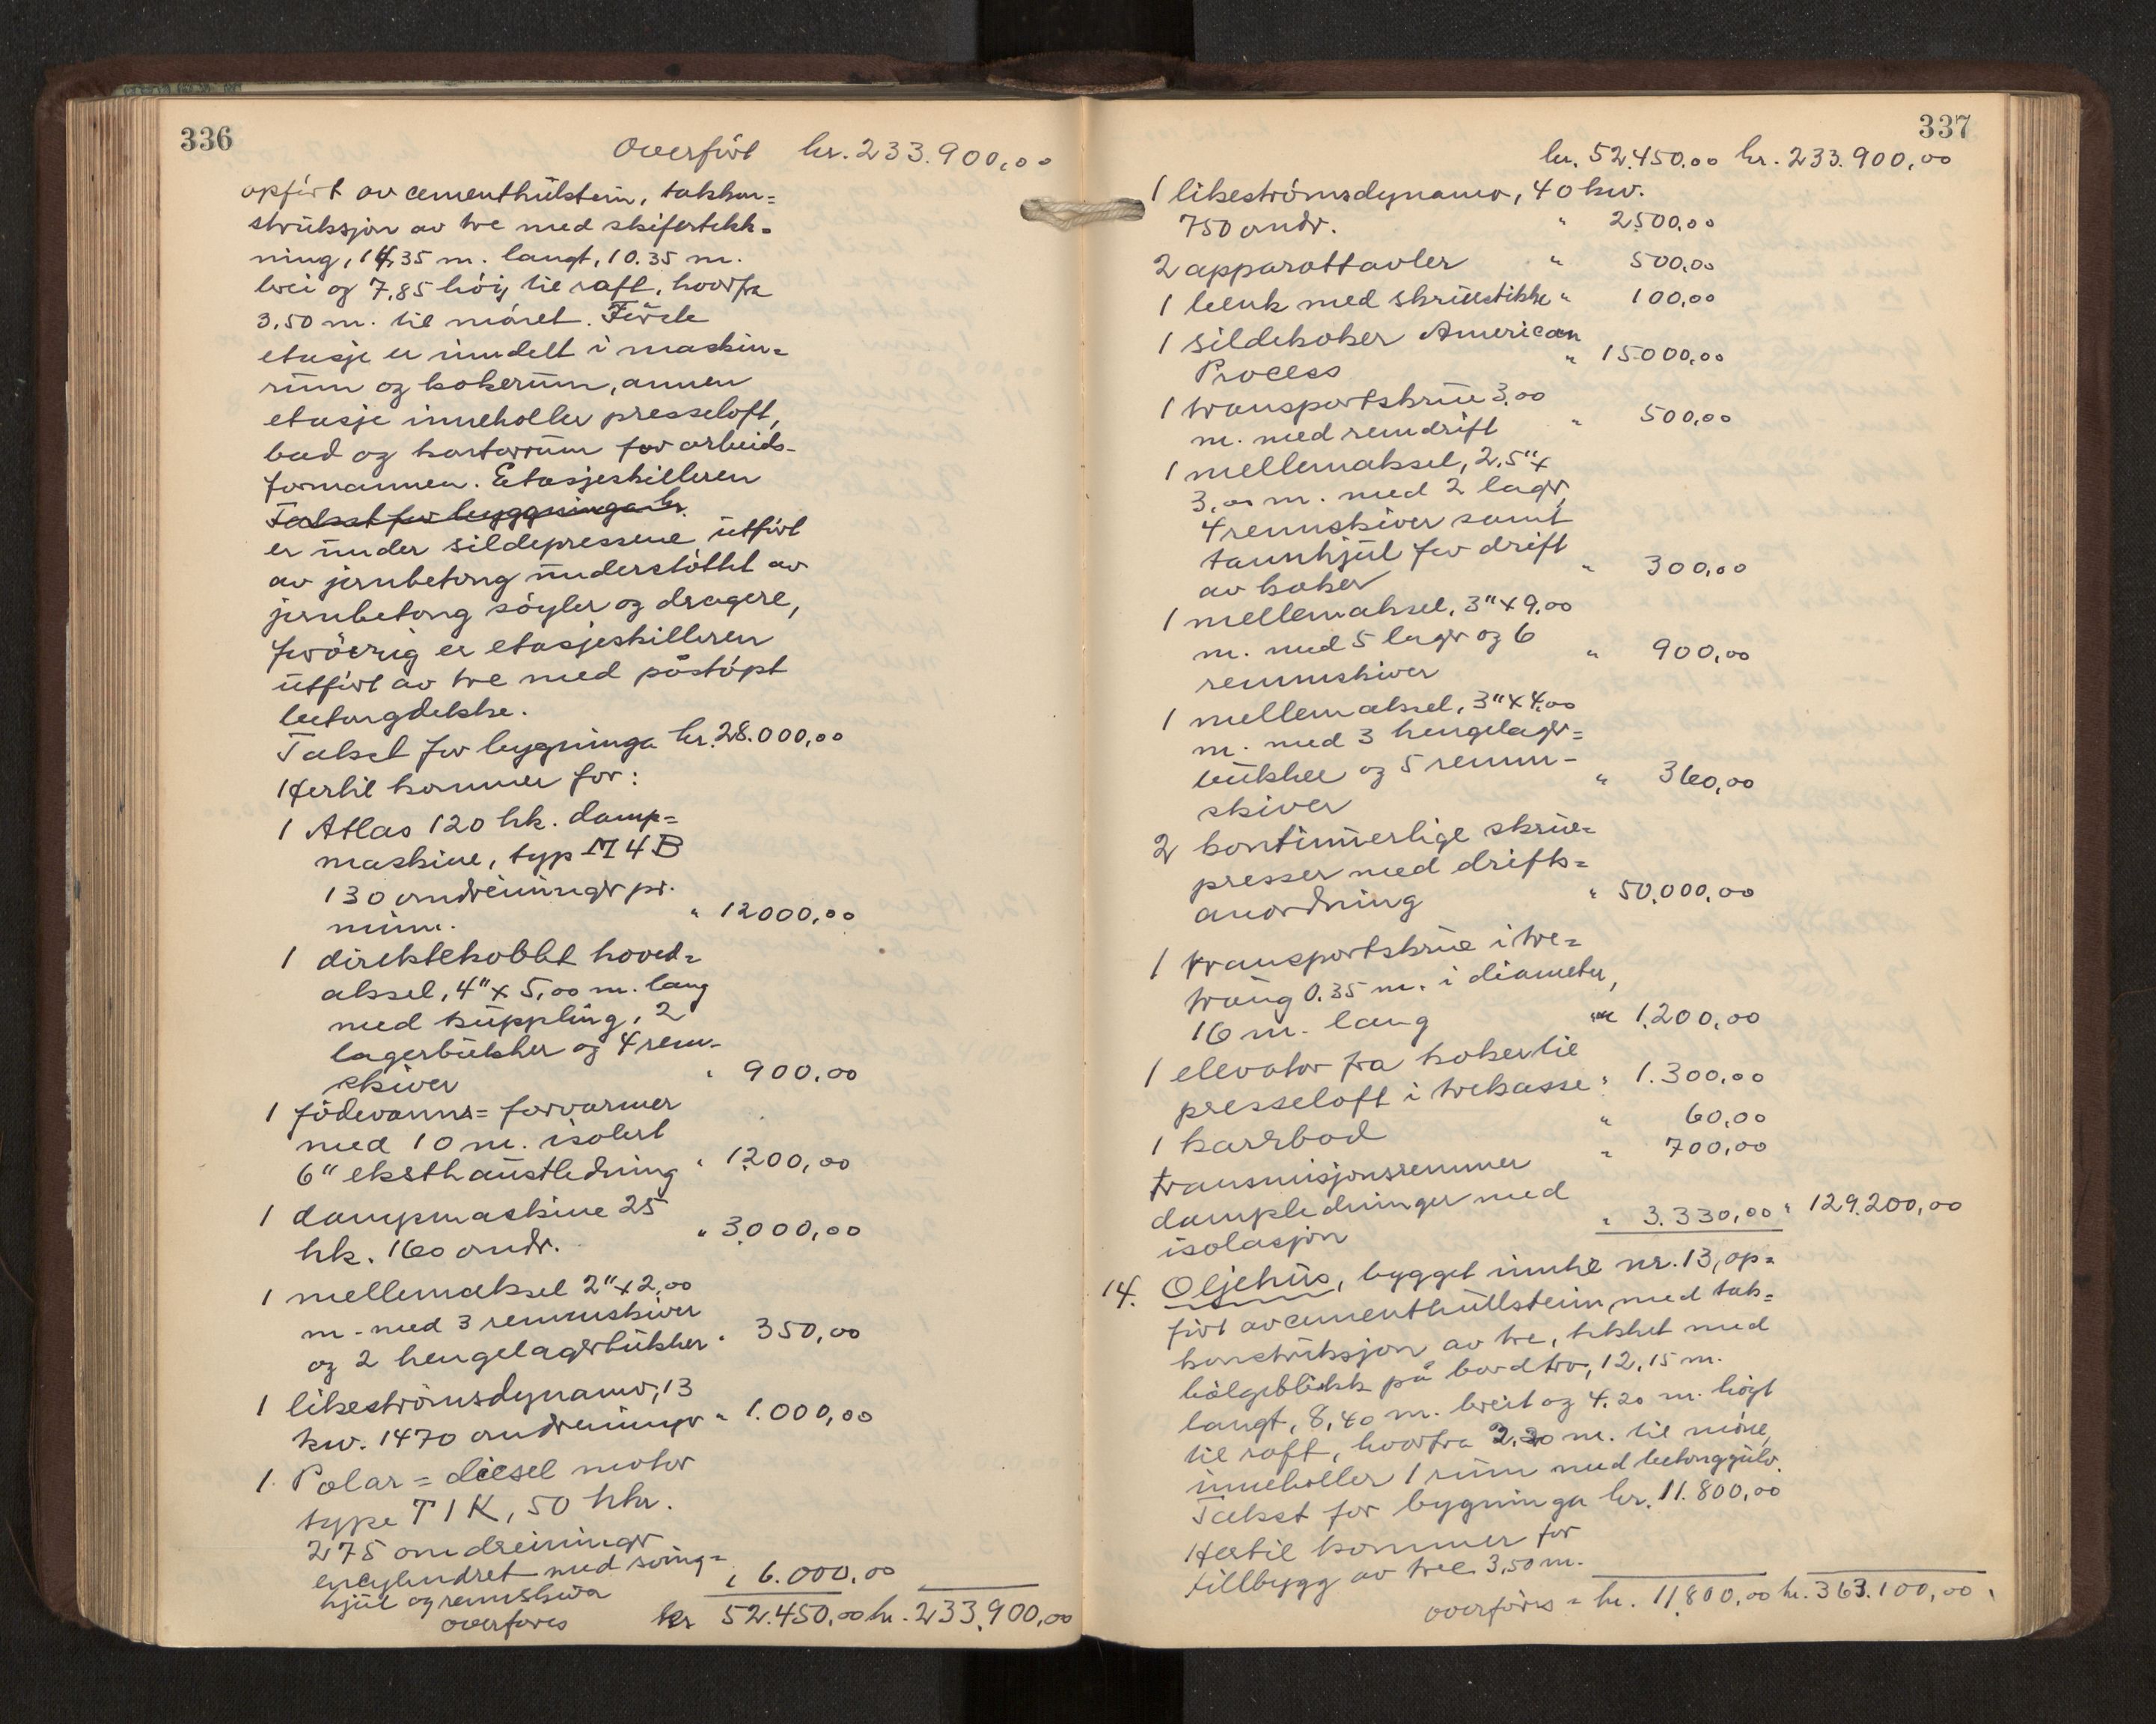 336
Overført kr. 233.900,00
opført av cementhulstein, takkon=
struksjon av tre med skifertekk=
ning, 14,35 m. langt, 10.35 m.
brei og 7,85 høig til raft, hvorfra
3,50 m. til mønet. Første
etasje er inndelt i maskin=
rum og kokerum, annen
etasje inneholler presseloft,
bad og kontorrum for arbeids-
formannen. Etasjeskilleren
Takset for byggninga kr.
er under sildepressene utført
av jernbetong understøttet av
jernbetong søyler og dragere,
forøvrig er etasjeskilleren
utført av tre med påstøpt
betongdekke.
Takst for bygninga kr. 28.000,00
Hertil kommer for:
1 Atlas 120 hk. damp=
maskine, typ M4B
130 omdreininger pr.
min. " 12000,00
1 direktekoblet hoved=
aksel, 4" x 5,00 m. lang
med kuppling, 2
lagerbukker og 4 rem-
skiver " 900,00
1 fødevanns= forvarmer
med 10 m. isolert
6" eksthaustledning " 1200,00
1 dampmaskine 25
hk. 160 omdr. " 3000,00
1 mellemaksel 2" x 2,00
m. med 3 remmskiver
og 2 hengelagerbukker " 350,00
1 likestrømsdynamo, 13
kw. 1470 omdreininger " 1.000,00
1. Polar = diesel motor
type T1K, 50 hkr.
275 omdreininger
encylindret med sving=
hjul og remskiva " 6.000,00
overføres kr 52.450,00 kr. 233.900,00
337
kr. 52.450,00 kr. 233.900,00
1 likestrømsdynamo, 40 kw.
750 omdr. " 2500,00
2 apparattavler " 500,00
1 benk med skruestikke " 100,00
1 sildekoker American
Process " 15000,00
1 transportskrue 3,00
m. med remdrift " 500,00
1 mellemaksel, 2,5" x
3,00 m. med 2 lager,
4 remmskiver samt
tannhjul for drift
av koker " 300,00
1 mellemaksel, 3" x 9,00
m. med 5 lager og 6
remmskiver " 900,00
1 mellemaksel, 3" x 4,00
m. med 3 hengelager=
bukker og 5 remm-
skiver " 360,00
2 kontinuerlige skrue=
presser med drifts=
anordning " 50.000,00
1 transportskrue i tre=
traug 0.35 m. i diameter,
16 m. lang " 1.200,00
1 elevator fra koker til
presseloft i trekasse " 1.300,00
1 karrbad " 60,00
transmisjonsremmer " 700,00
dampledninger med
isolasjon " 3.330,00 " 129.200,00
14. Oljehus, bygget inntil nr. 13, op=
ført av cementhullstein med tak=
konstruksjon av tre, tekket med
bølgeblikk på bordtro, 12,15 m.
langt, 8,40 m. breit og 4,20 m. høgt
til raft, hvorfra 2,20 m. til møne,
inneholler 1 rum med betonggulv.
Takst for bygninga kr. 11.800,00
Hertil kommer for
tillbygg av tre 3,50 m.
overføres = kr. 11.800,00 kr. 363.100,00